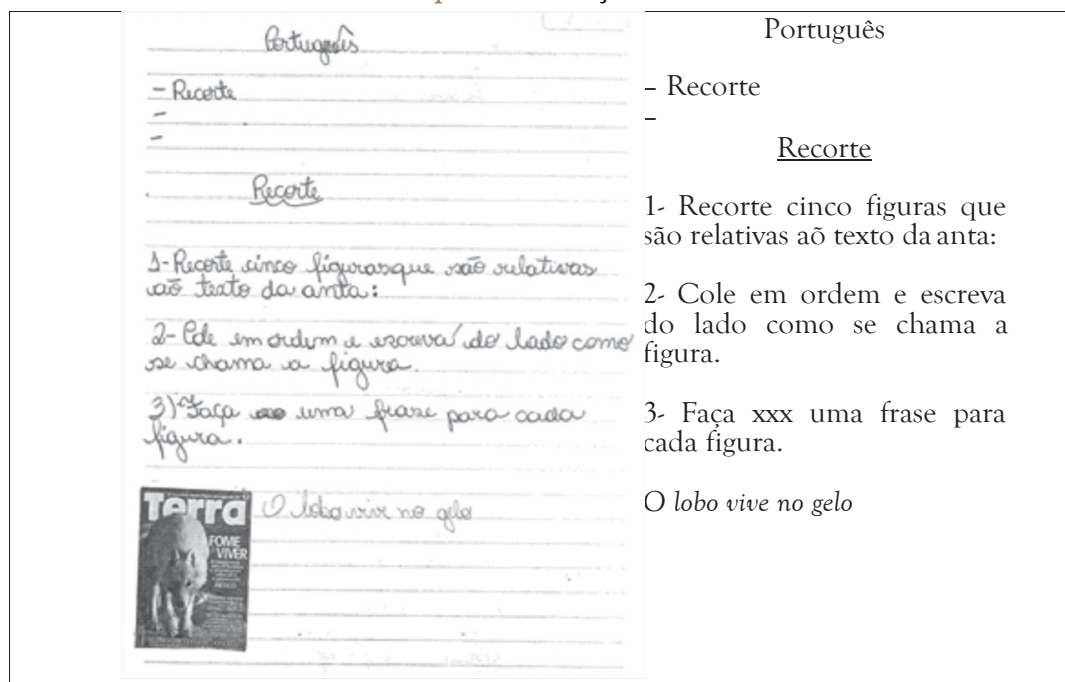 Português
- Recorte
-
-
Recorte
1- Recorte cinco figuras que são relativas
aõ texto da anta:
2- Cole em ordem e escreva do lado como
se chama a figura.
3) Faça uma frase para cada
figura.
Terra
FOME
VIVER
O lobo vive no gelo
Português
– Recorte
–
Recorte
1- Recorte cinco figuras que
são relativas aõ texto da anta:
2- Cole em ordem e escreva
do lado como se chama a
figura.
3- Faça xxx uma frase para
cada figura.
O lobo vive no gelo